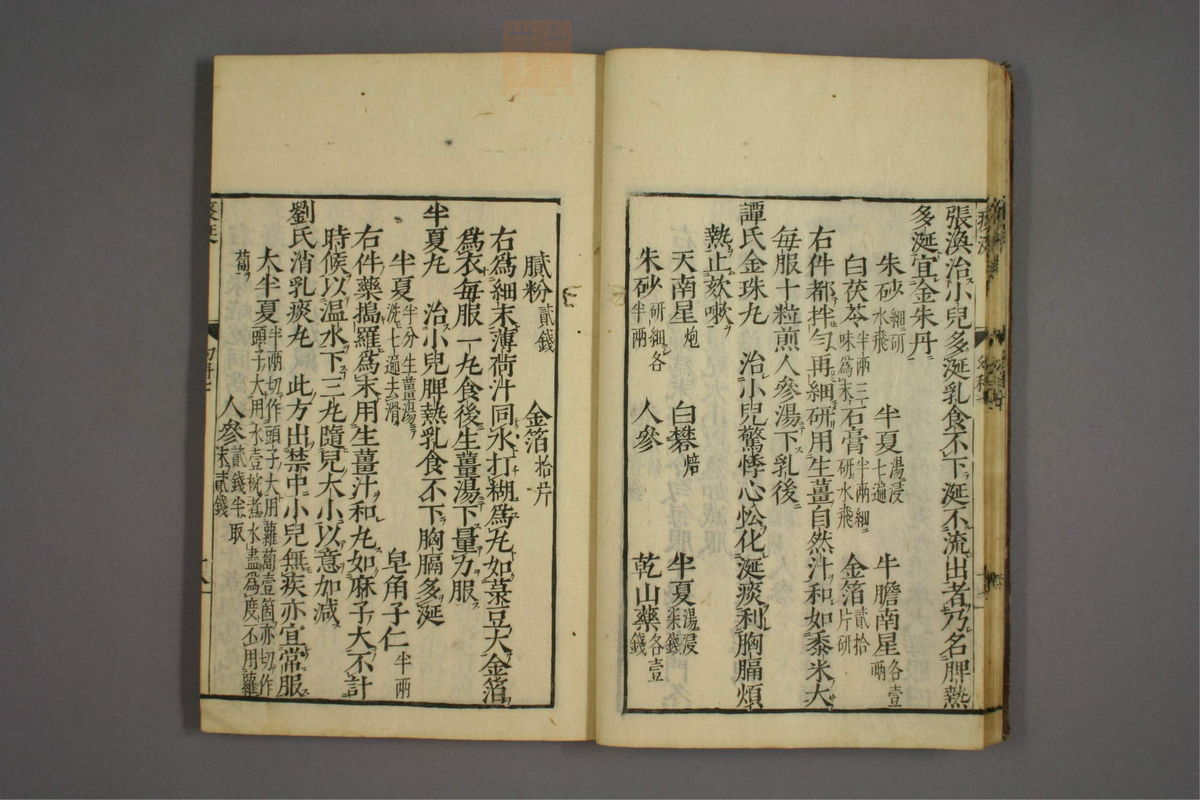 張渙治小兒多涎乳食不下涎不流出者乃名脾熱
多涎宜金朱丹
朱砂細研水飛 半夏湯浸七遍 牛膽南星各壹兩
白茯苓半兩三味爲末 石膏半兩細研水飛 金箔貳拾片研
右件都拌勻再細研用生薑自然汁和如黍米大
每服十粒煎人參湯下乳後
譚氏金珠丸 治小兒驚悸心忪化涎痰利胸膈煩
熱止欬嗽
天南星炮 白礬焙 半夏湯浸柒錢
朱砂研細各半兩 人參 乾山藥各壹錢
膩粉貳錢 金箔拾片
右爲細末薄荷汁同水打糊爲丸如菉豆大金箔
爲衣每服一丸食後生薑湯下量力服
半夏丸 治小兒脾熱乳食不下胸膈多涎
半夏半分生薑湯洗七遍去滑 皂角子仁半兩
右件藥搗羅爲末用生薑汁和丸如麻子大不計
時候以温水下三丸隨兒大小以意加減
劉氏消乳痰丸 此方出禁中小兒無疾亦宜常服
大半夏半兩切作頭子大用蘿蔔壹箇亦切作頭子大用水壹椀煮水盡爲度不用蘿
蔔 人參貳錢半取末貳錢